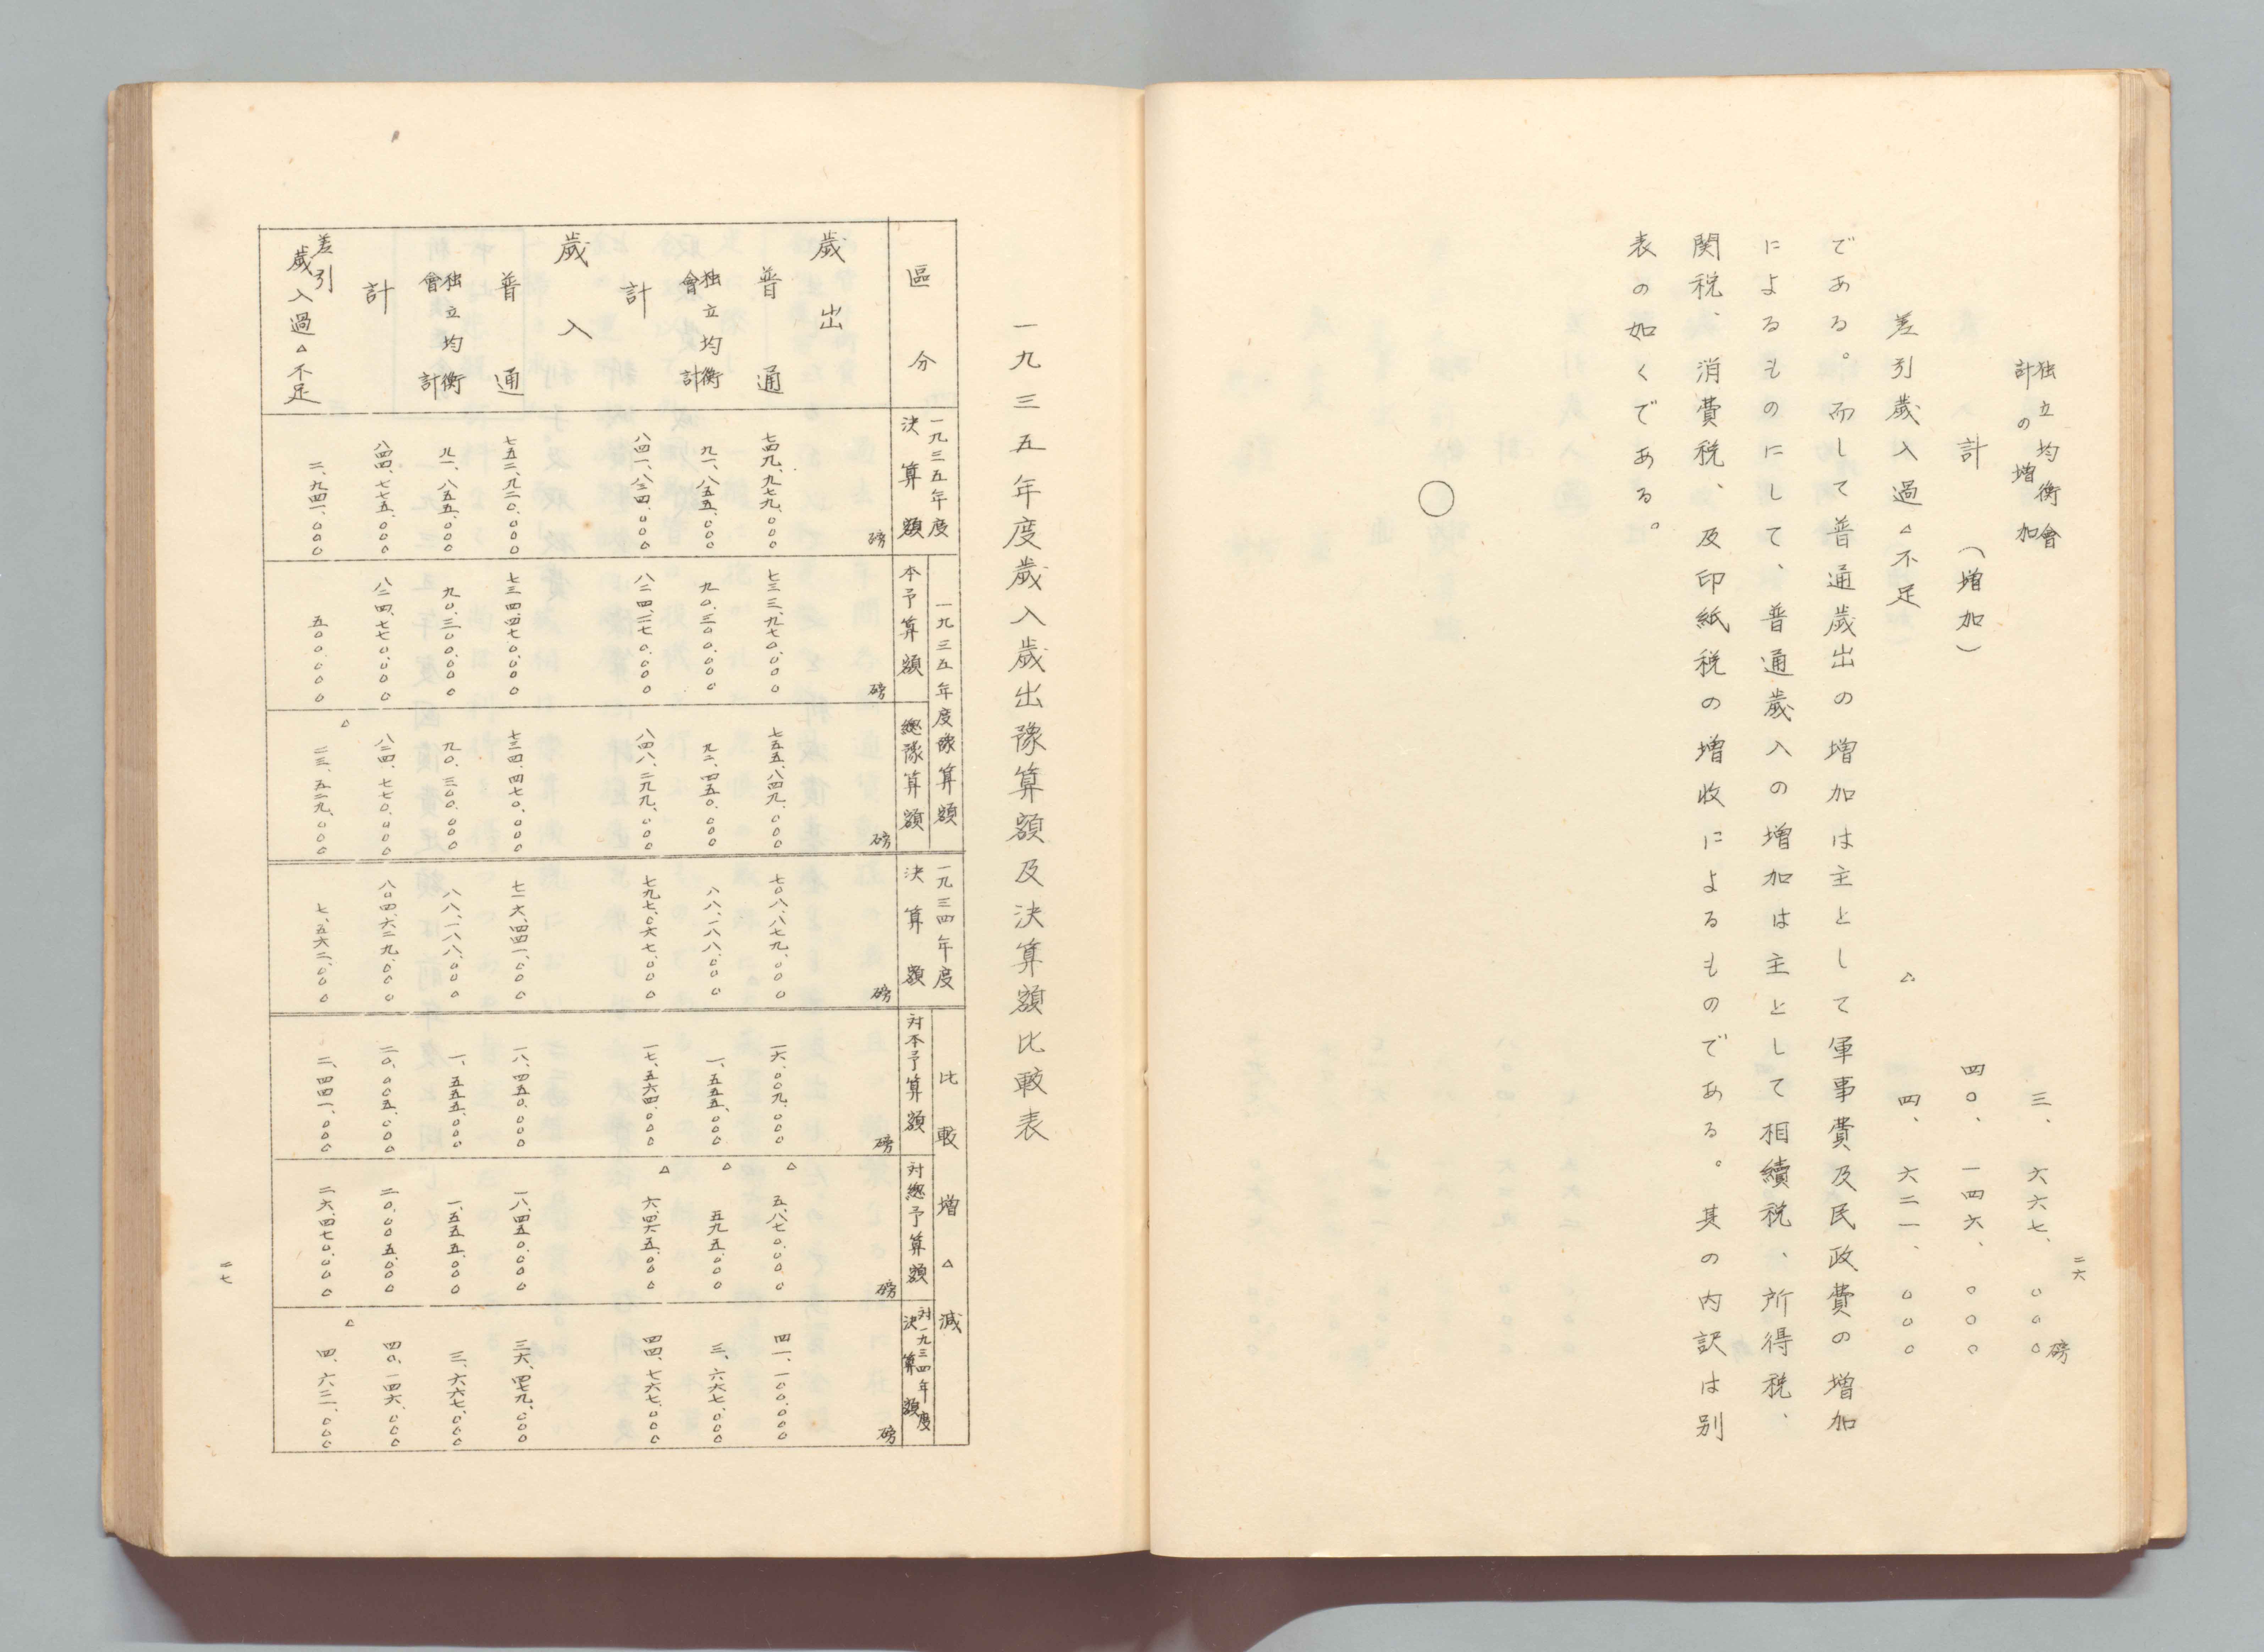 独立均衡會
計の増加
三、六六七、〇〇〇磅
計（増加）
四〇、一四六、〇〇〇
差引歲入過△不足
△四、六二一、〇〇〇
である。而して普通歲出の増加は主として軍事費及民政費の増加
によるものにして、普通歲入の増加は主として相續税、所得税、
関税、消費税、及印紙税の増收によるものである。其の内訳は別
表の如くである。
〇
二六
一九三五年度歲入歲出豫算額及決算額比較表
區分
一九三五年度決算額
一九三五年度豫算額
本予算額
總豫算額
一九三四年度決算額
比較増△減
対本予算額
対總予算額
対一九三四年度決算額
磅 磅 磅 磅 磅 磅 磅
歲出
普通 七四九、九七九、〇〇〇 七三三、九七〇、〇〇〇 七五五、八四九、〇〇〇 七〇八、八七九、〇〇〇 一六、〇〇九、〇〇〇 △五、八七〇、〇〇〇 四一、一〇〇、〇〇〇
独立均衡會計 九一、八五五、〇〇〇 九〇、三〇〇、〇〇〇 九二、四五〇、〇〇〇 八八、一八八、〇〇〇 一、五五五、〇〇〇 △五九五、〇〇〇 三、六六七、〇〇〇
計 八四一、八三四、〇〇〇 八二四、二七〇、〇〇〇 八四八、二九九、〇〇〇 七九七、〇六七、〇〇〇 一七、五六四、〇〇〇 △六、四六五、〇〇〇 四四、七六七、〇〇〇
歲入
普通 七五二、九二〇、〇〇〇 七三四、四七〇、〇〇〇 七三四、四七〇、〇〇〇 七一六、四四一、〇〇〇 一八、四五〇、〇〇〇 一八、四五〇、〇〇〇 三六、四七九、〇〇〇
独立均衡會計 九一、八五五、〇〇〇 九〇、三〇〇、〇〇〇 九〇、三〇〇、〇〇〇 八八、一八八、〇〇〇 一、五五五、〇〇〇 一、五五五、〇〇〇 三、六六七、〇〇〇
計 八四四、七七五、〇〇〇 八二四、七七〇、〇〇〇 八二四、七七〇、〇〇〇 八〇四、六二九、〇〇〇 二〇、〇〇五、〇〇〇 二〇、〇〇五、〇〇〇 四〇、一四六、〇〇〇
差引歲入過△不足 二、九四一、〇〇〇 五〇〇、〇〇〇 △二三、五二九、〇〇〇 七、五六二、〇〇〇 二、四四一、〇〇〇 二六、四七〇、〇〇〇 △四、六二一、〇〇〇
二七